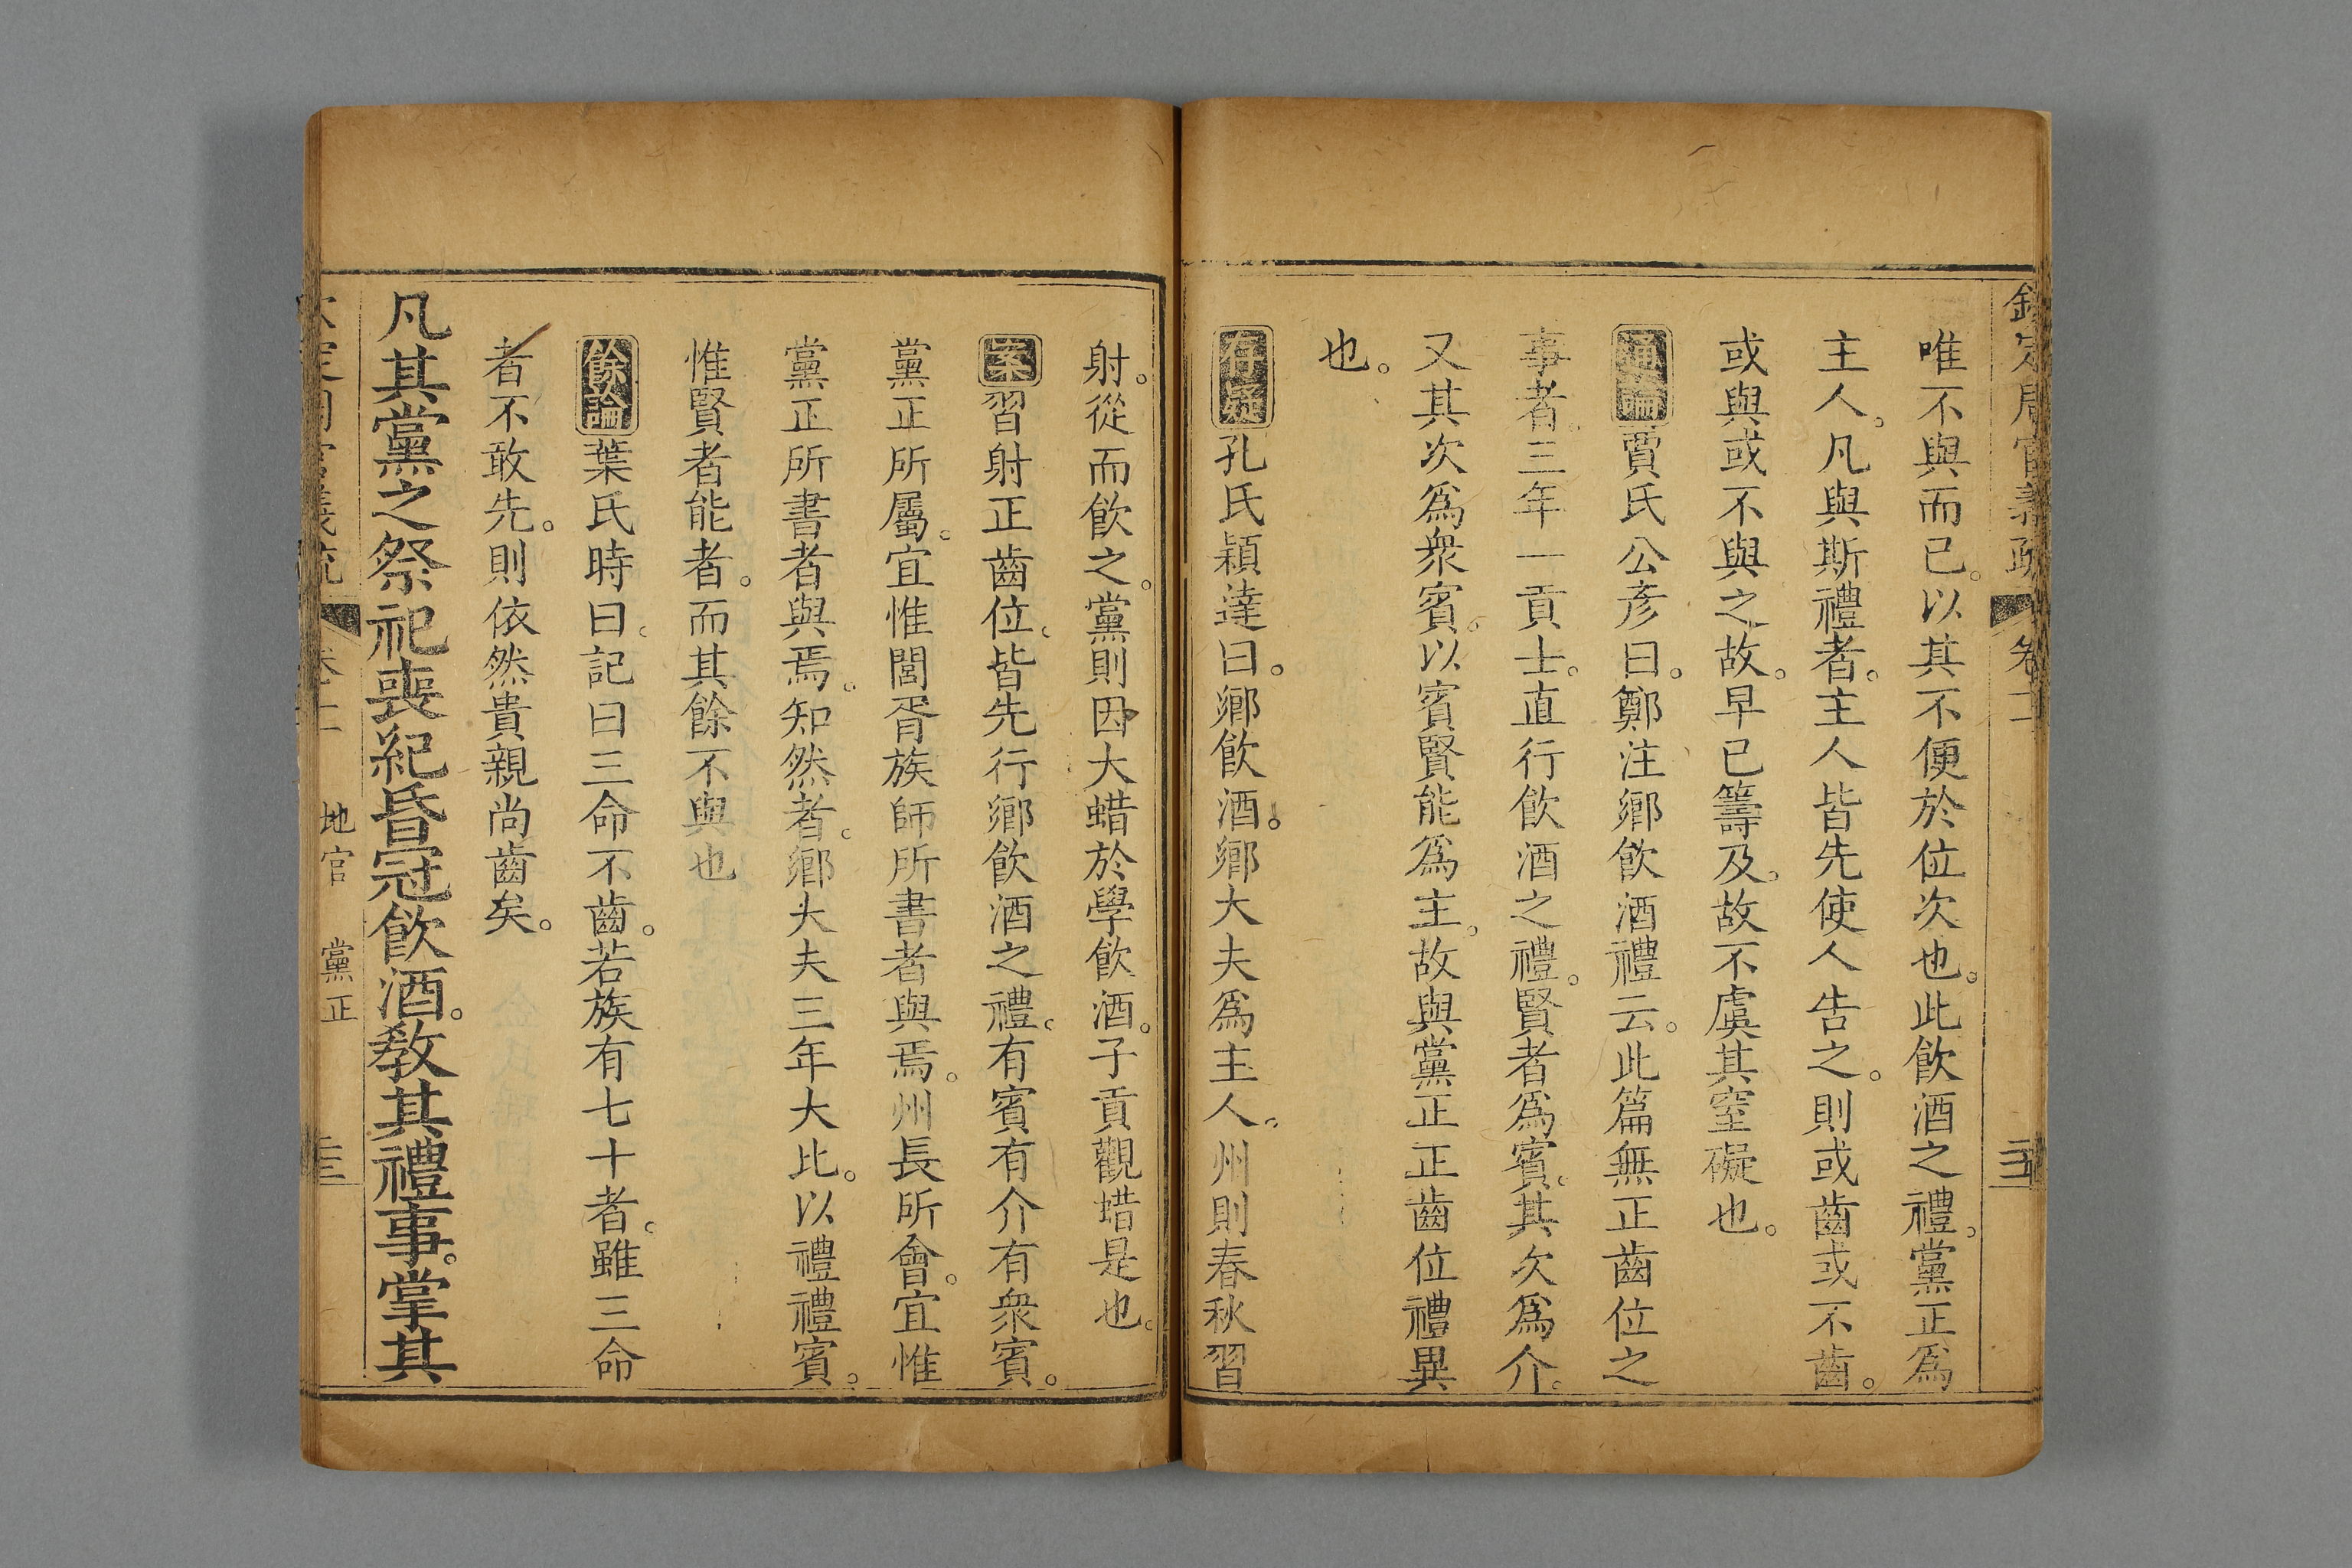 欽定周官義疏 卷十一
唯不與而已。以其不便於位次也。此飲酒之禮。黨正爲
主人。凡與斯禮者。主人皆先使人告之。則或齒或不齒。
或與或不與之故。早已籌及。故不虞其窒礙也。
通論賈氏公彦曰。鄭注鄉飲酒禮云。此篇無正齒位之
事者。三年一貢士。直行飲酒之禮。賢者爲賓。其次爲介。
又其次爲衆賓。以賓賢能爲主。故與黨正正齒位禮異
也。
存疑孔氏穎達曰。鄉飲酒。鄉大夫爲主人。州則春秋習
射。從而飲之。黨則因大蜡於學飲酒。子貢觀蜡是也。
案習射正齒位。皆先行鄉飲酒之禮。有賓有介有衆賓。
黨正所屬。宜惟閭胥族師所書者與焉。州長所會。宜惟
黨正所書者與焉。知然者。鄉大夫三年大比。以禮禮賓。
惟賢者能者。而其餘不與也
餘論葉氏時曰。記曰三命不齒。若族有七十者。雖三命
者不敢先。則依然貴親尚齒矣。
凡其黨之祭祀喪紀昏冠飲酒。教其禮事。掌其
欽定周官義疏 卷十一 地官 黨正